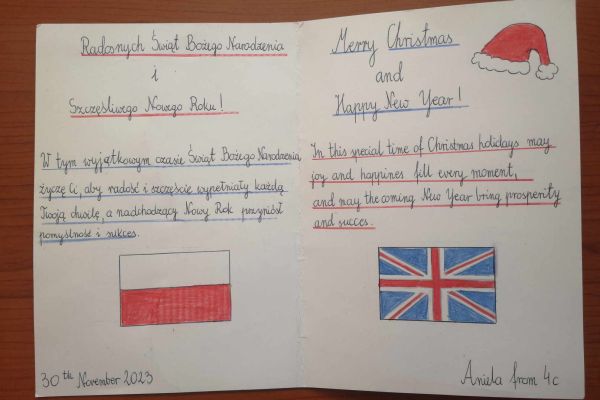 Radosnych Świąt Bożego Narodzenia
i
Szczęśliwego Nowego Roku!
W tym wyjątkowym czasie Świąt Bożego Narodzenia,
życzę Ci, aby radość i szczęście wypełniały każdą
Twoją chwilę, a nadchodzący Nowy Rok przyniósł
pomyślność i sukces.
30th November 2023
Merry Christmas
and
Happy New Year!
In this special time of Christmas holidays may
joy and happines fill every moment,
and may the coming New Year bring prosperity
and succes.
Aniela from 4c